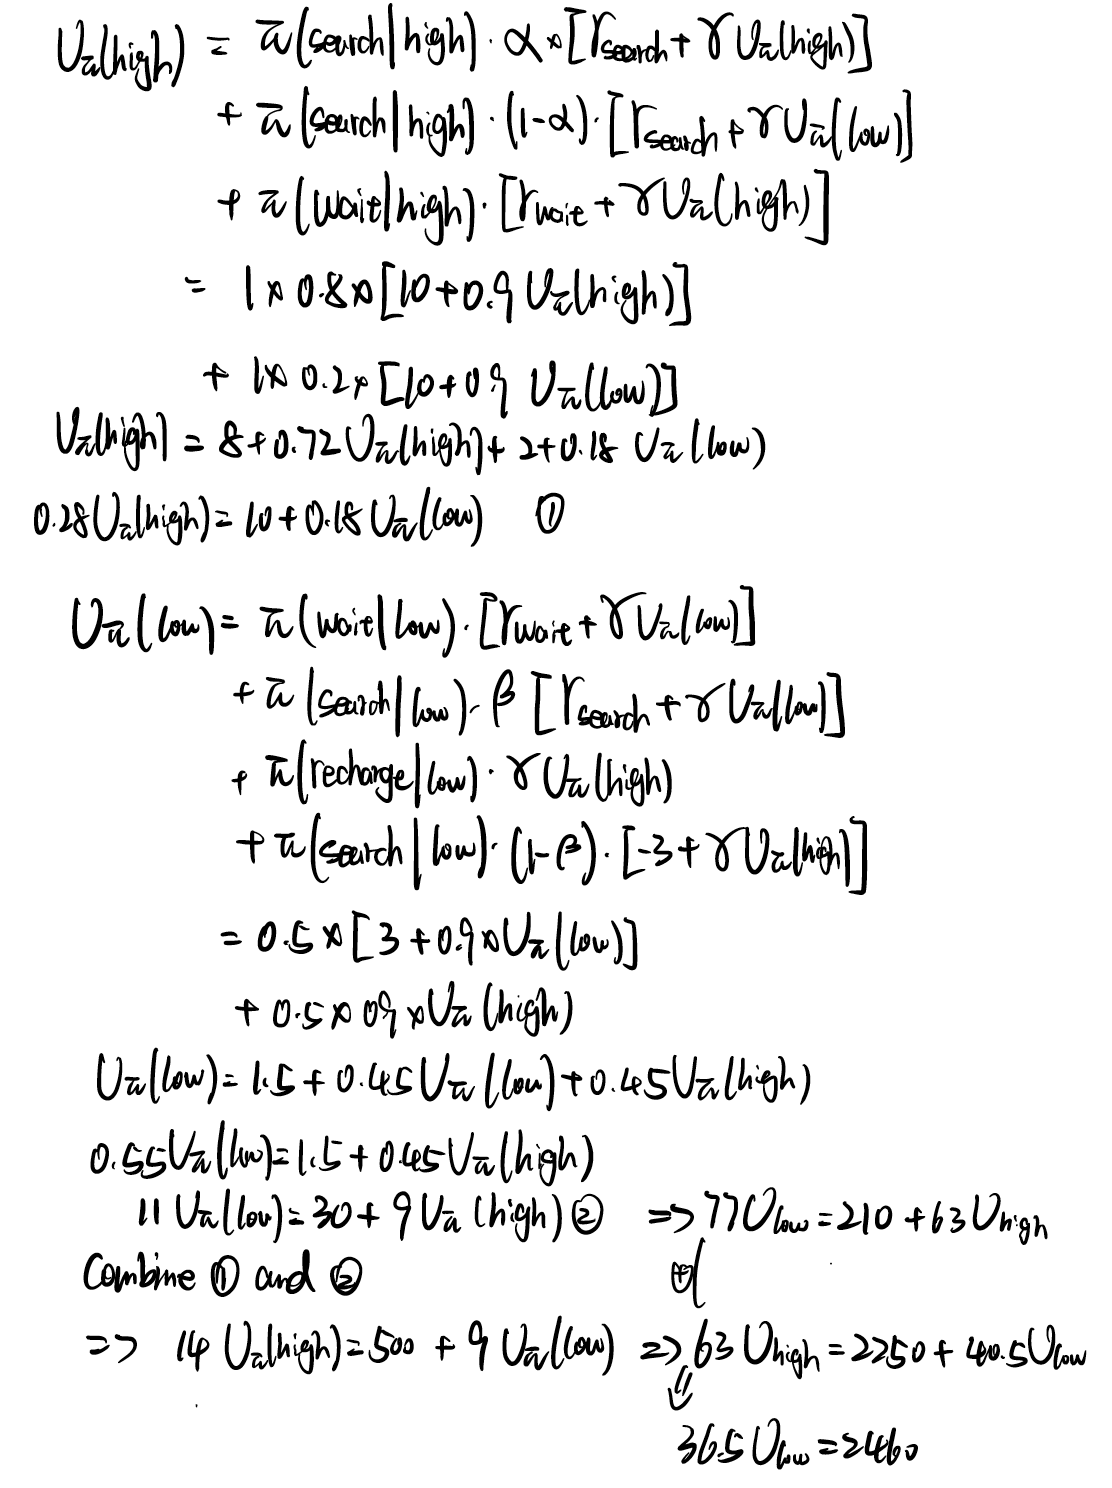 U_π(high) = π(search|high) · α × [r_search + γ U_π(high)]
+ π(search|high) · (1-α) · [r_search + γ U_π(low)]
+ π(wait|high) · [r_wait + γ U_π(high)]
= 1 × 0.8 × [10 + 0.9 U_π(high)]
+ 1 × 0.2 × [10 + 0.9 U_π(low)]
U_π(high) = 8 + 0.72 U_π(high) + 2 + 0.18 U_π(low)
0.28 U_π(high) = 10 + 0.18 U_π(low) ①
U_π(low) = π(wait|low) · [r_wait + γ U_π(low)]
+ π(search|low) · β [r_search + γ U_π(low)]
+ π(recharge|low) · γ U_π(high)
+ π(search|low) · (1-β) · [-3 + γ U_π(high)]
= 0.5 × [3 + 0.9 × U_π(low)]
+ 0.5 × 0.9 × U_π(high)
U_π(low) = 1.5 + 0.45 U_π(low) + 0.45 U_π(high)
0.55 U_π(low) = 1.5 + 0.45 U_π(high)
11 U_π(low) = 30 + 9 U_π(high) ② => 77 U_low = 210 + 63 U_high
Combine ① and ② ⊕
=> 14 U_π(high) = 500 + 9 U_π(low) => 63 U_high = 2250 + 40.5 U_low
⇓
36.5 U_low = 2460